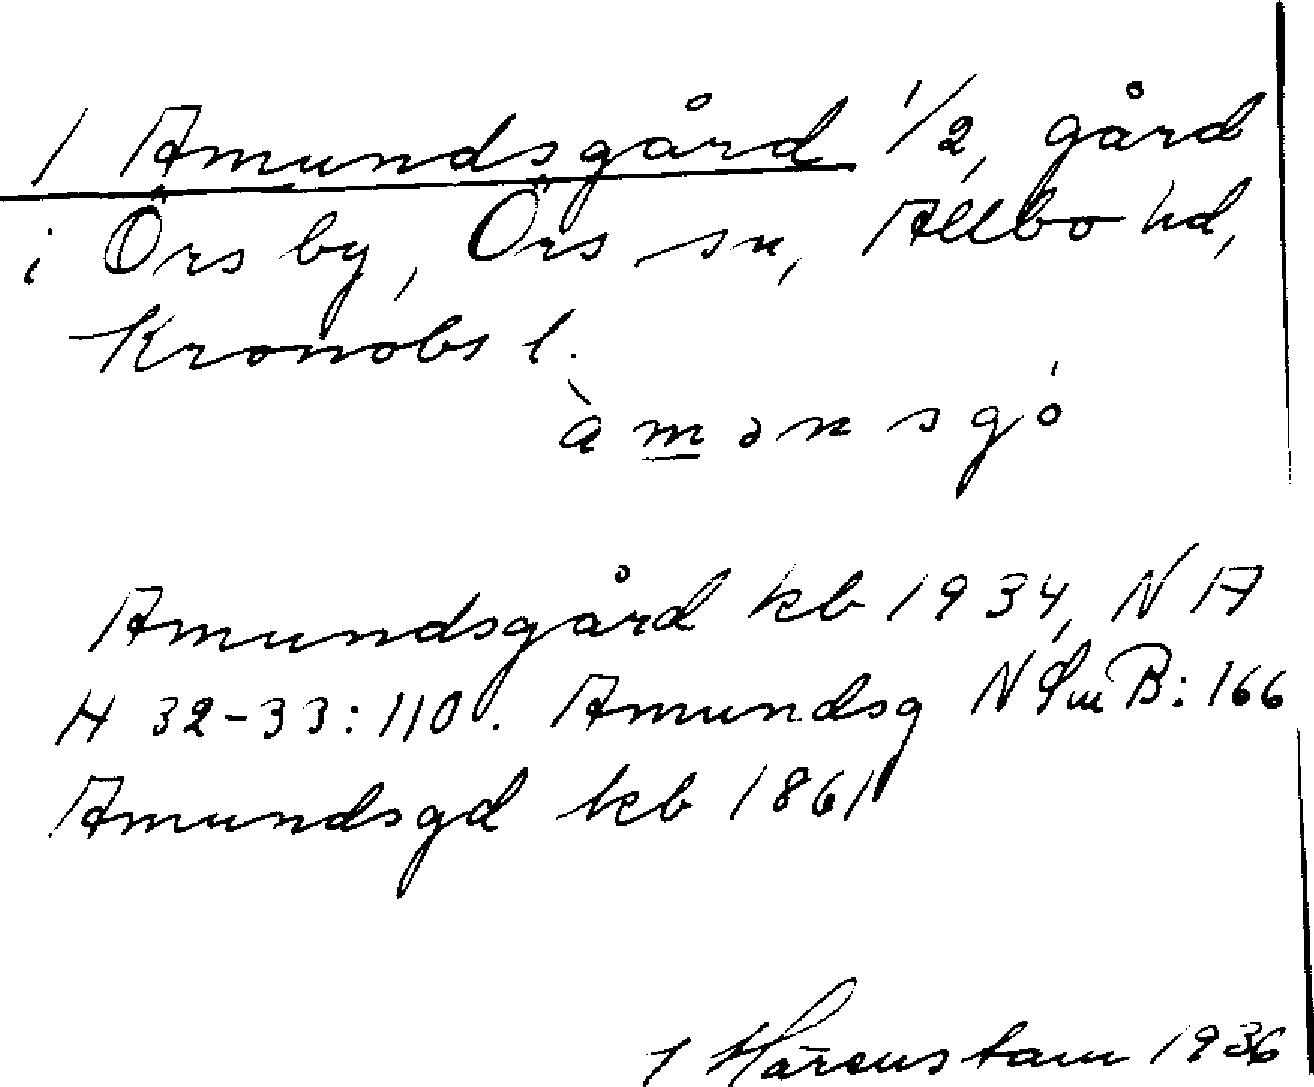 1 Amundsgård 1/2, gård
i Örs by, Örs sn, Allbo hd,
Kronobs l.
à m ə n s g ó
Amundsgård kb 1934, N A
H 32-33:110. Amundsg N Sm B:166
Amundsgd kb 1861
I Hårenstam 1936